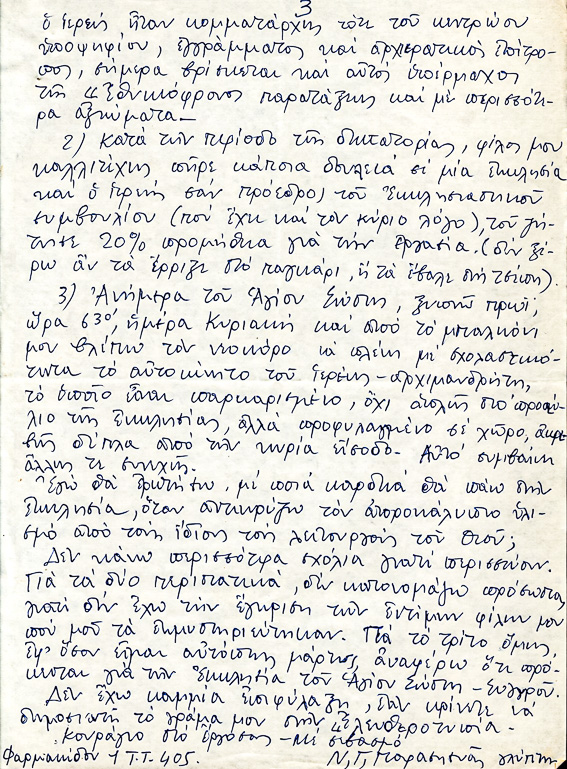 3
ὁ ἱερεύς ἦταν κομματάρχης τότε τοῦ κεντρώου
ὑποψηφίου, ἐγγράμματος καί ἀρχιερατικός ἐπίτρο-
πος, σήμερα βρίσκεται καί αὐτός ὑπέρμαχος
τῆς "ἐθνικόφρονος παρατάξης καί μέ περισσότε-
ρα ἀξιώματα.-
2) Κατά τήν περίοδο τῆς δικτατορίας, φίλος μου
καλλιτέχνης πῆρε κάποια δουλειά σέ μία Ἐκκλησία
καί ὁ ἱερεύς σάν πρόεδρος τοῦ Ἐκκλησιαστικοῦ
συμβουλίου (πού ἔχει καί τόν κύριο λόγο), τοῦ ζή-
τησε 20% προμήθεια γιά τήν ἐργασία. (δέν ξέ-
ρω ἄν τά ἔρριξε στό παγκάρι, ἤ τά ἔβαλε στή τσέπη).
3) Ἀνήμερα τοῦ Ἁγίου Σώστη, ξυπνῶ πρωΐ,
ὥρα 6³⁰, ἡμέρα Κυριακή καί ἀπό τό μπαλκόνι
μου βλέπω τόν νεωκόρο νά πλένει μέ σχολαστικό-
τητα τό αὐτοκίνητο τοῦ ἱερέως - ἀρχιμανδρίτη,
τό ὁποῖο εἶναι παρκαρισμένο, ὄχι ἁπλῆς στό προαύ-
λιο τῆς Ἐκκλησίας, ἀλλά προφυλαγμένο σέ χῶρο, ἀκρι-
βῶς δίπλα ἀπό τήν κυρία εἴσοδο. Αὐτό συμβαίνει
ἄλλως τε συνεχῆ.
Ἐγώ θά ἐρωτήσω, μέ ποιά καρδιά θά πάω στήν
Ἐκκλησία, ὅταν ἀντικρύζω τόν ἀπροκάλυπτο ὑλι-
σμό ἀπό τούς ἴδιους τούς λειτουργούς τοῦ Θεοῦ;
Δέν κάνω περισσότερα σχόλια γιατί περισσεύουν.
Γιά τά δύο περιστατικά, δέν κατονομάζω πρόσωπα,
γιατί δέν ἔχω τήν ἔγκριση τῶν ἐντίμων φίλων μου
πού μοῦ τά ἐμυστηρεύτηκαν. Γιά τό τρίτο ὅμως,
ἐφ' ὅσον εἶμαι αὐτόπτης μάρτυς, ἀναφέρω ὅτι πρό-
κειται γιά τήν Ἐκκλησία τοῦ Ἁγίου Σώστη - Συγγροῦ.
Δέν ἔχω καμμία ἐπιφύλαξη, ἐάν κρίνετε νά
δημοσιευτῆ τό γράμα μου στήν "Ἐλευθεροτυπία.-
Κουράγιο στό ἔργο σας - Μέ σεβασμό
Φαρμακίδου 1 Τ.Τ. 405. Ν. Γ. γλύπτης